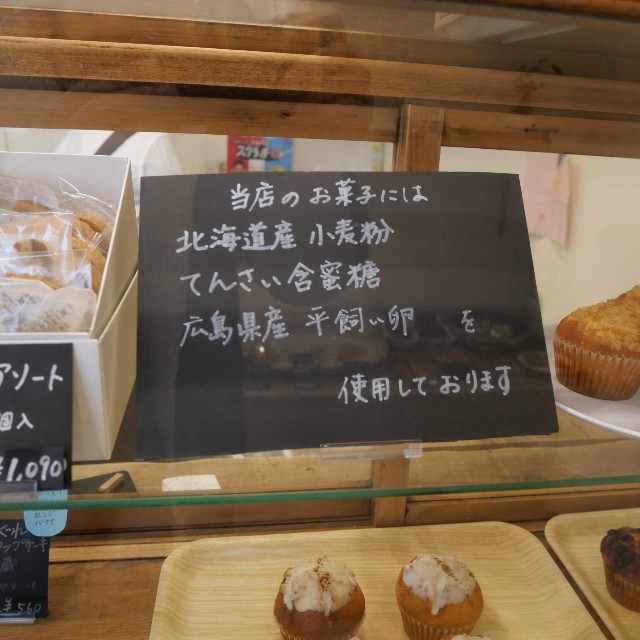 当店のお菓子には
北海道産 小麦粉
てんさい含蜜糖
広島県産 平飼い卵 を
使用しております
アソート
個入
¥1,090
¥560